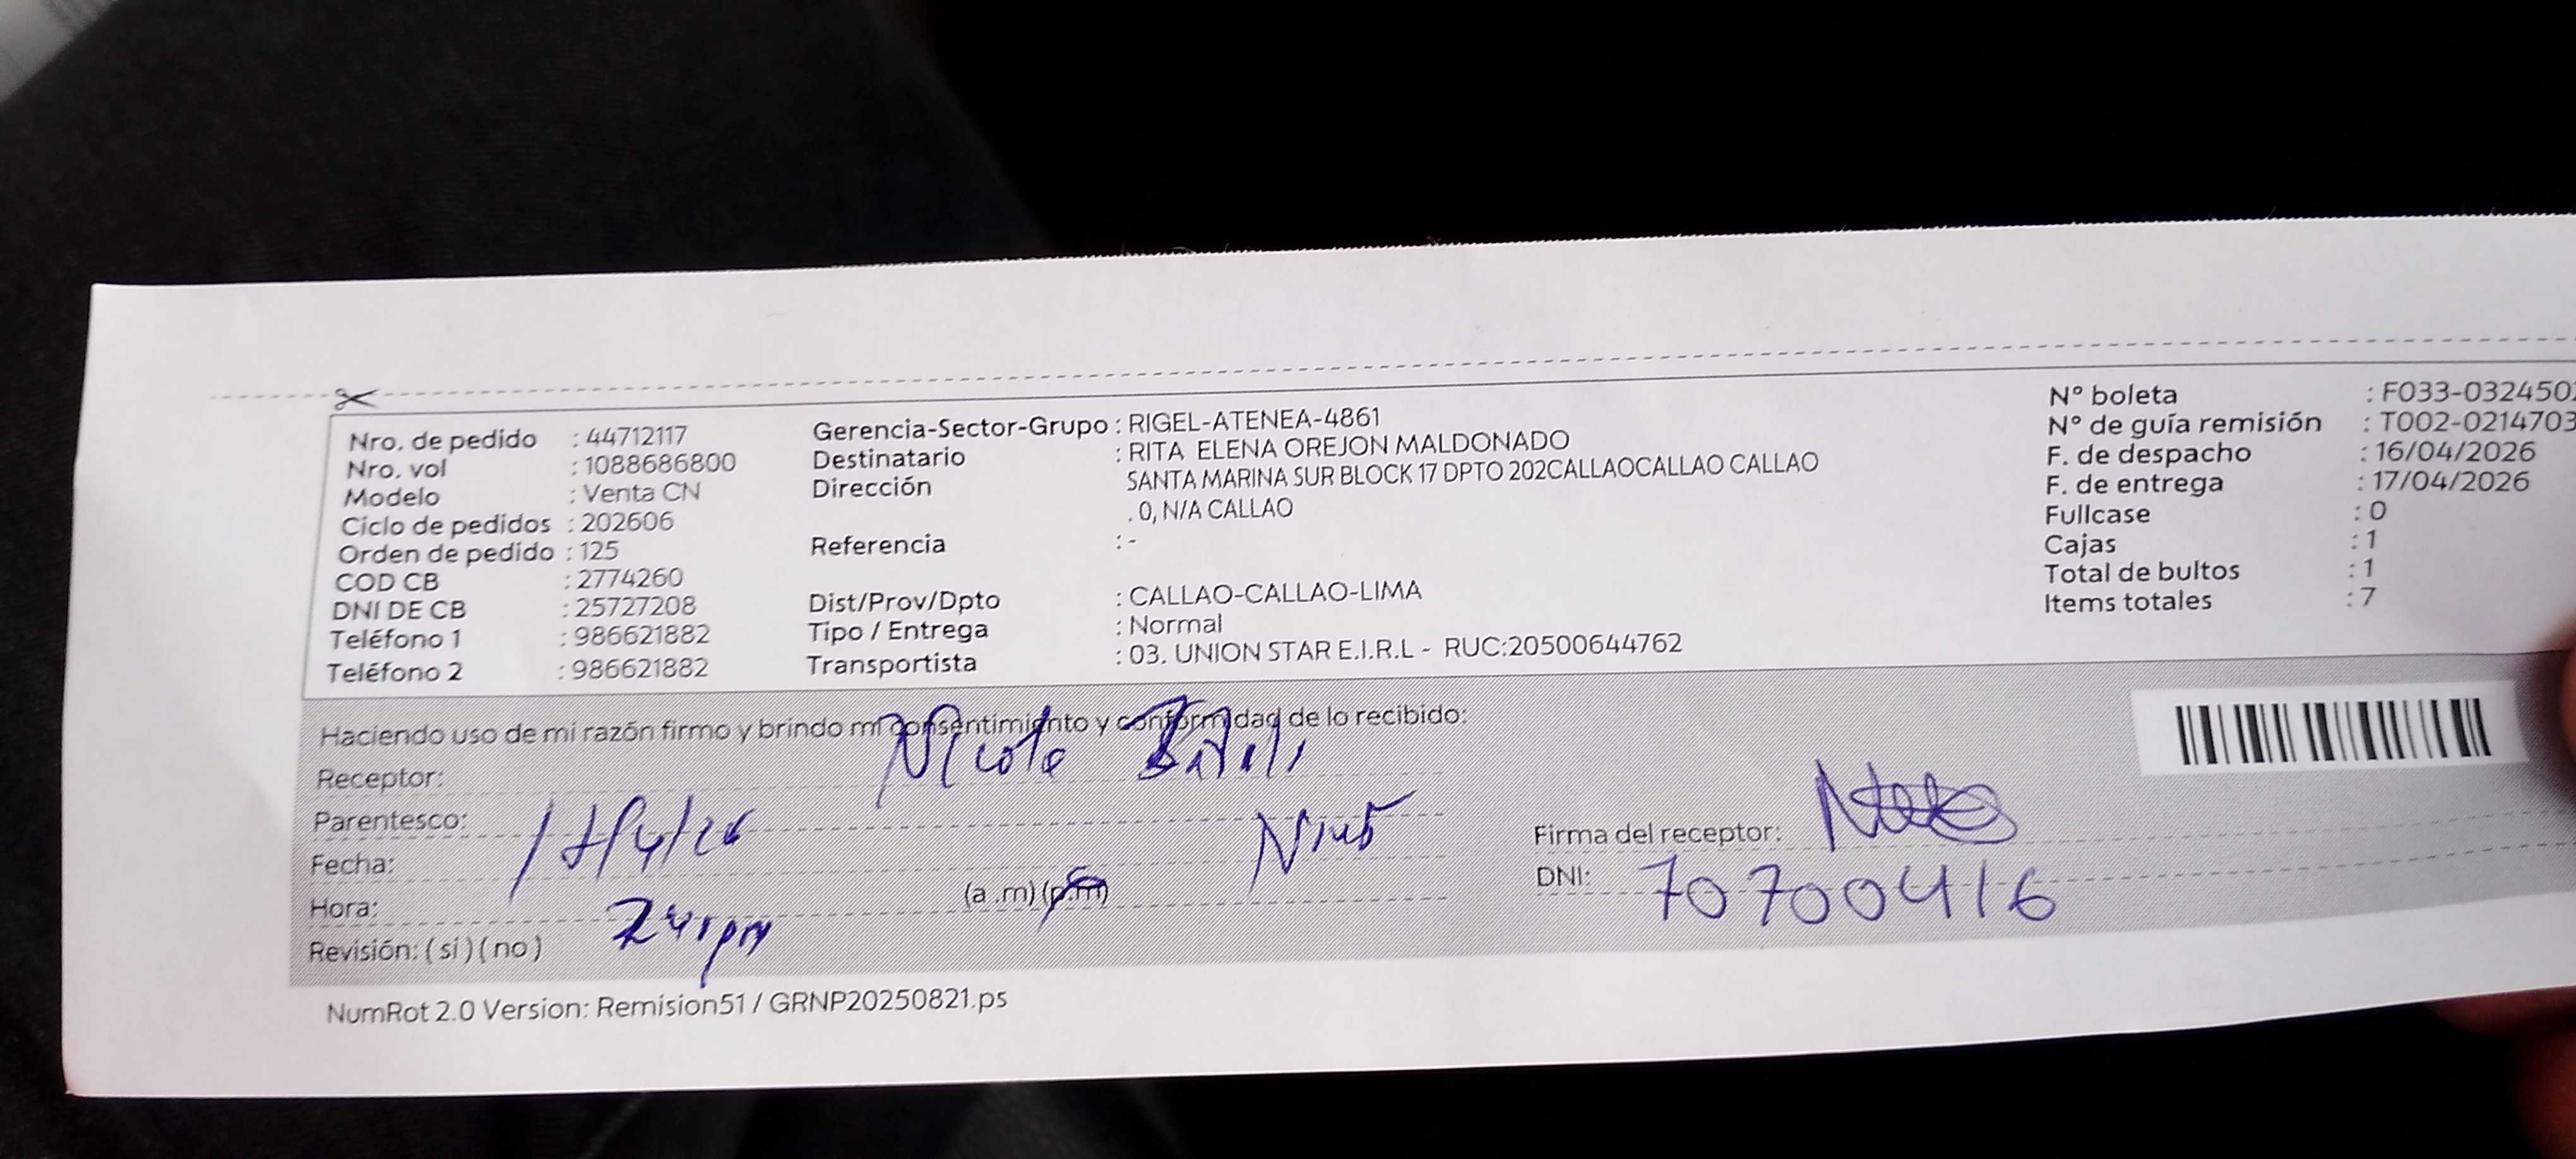 Nro. de pedido : 44712117
Nro. vol : 1088686800
Modelo : Venta CN
Ciclo de pedidos : 202606
Orden de pedido : 125
COD CB : 2774260
DNI DE CB : 25727208
Teléfono 1 : 986621882
Teléfono 2 : 986621882
Gerencia-Sector-Grupo : RIGEL-ATENEA-4861
Destinatario : RITA ELENA OREJON MALDONADO
Dirección SANTA MARINA SUR BLOCK 17 DPTO 202CALLAOCALLAO CALLAO
. 0, N/A CALLAO
Referencia : -
Dist/Prov/Dpto : CALLAO-CALLAO-LIMA
Tipo / Entrega : Normal
Transportista : 03. UNION STAR E.I.R.L - RUC:20500644762
N° boleta : F033-032450
N° de guía remisión : T002-0214703
F. de despacho : 16/04/2026
F. de entrega : 17/04/2026
Fullcase : 0
Cajas : 1
Total de bultos : 1
Items totales : 7
Haciendo uso de mi razón firmo y brindo mi consentimiento y conformidad de lo recibido:
Receptor: Nicole
Parentesco:
Fecha: 17/4/26
Hora: (a .m) (p.m)
Revisión: ( sí ) ( no )
Firma del receptor:
DNI: 70700416
NumRot 2.0 Version: Remision51 / GRNP20250821.ps